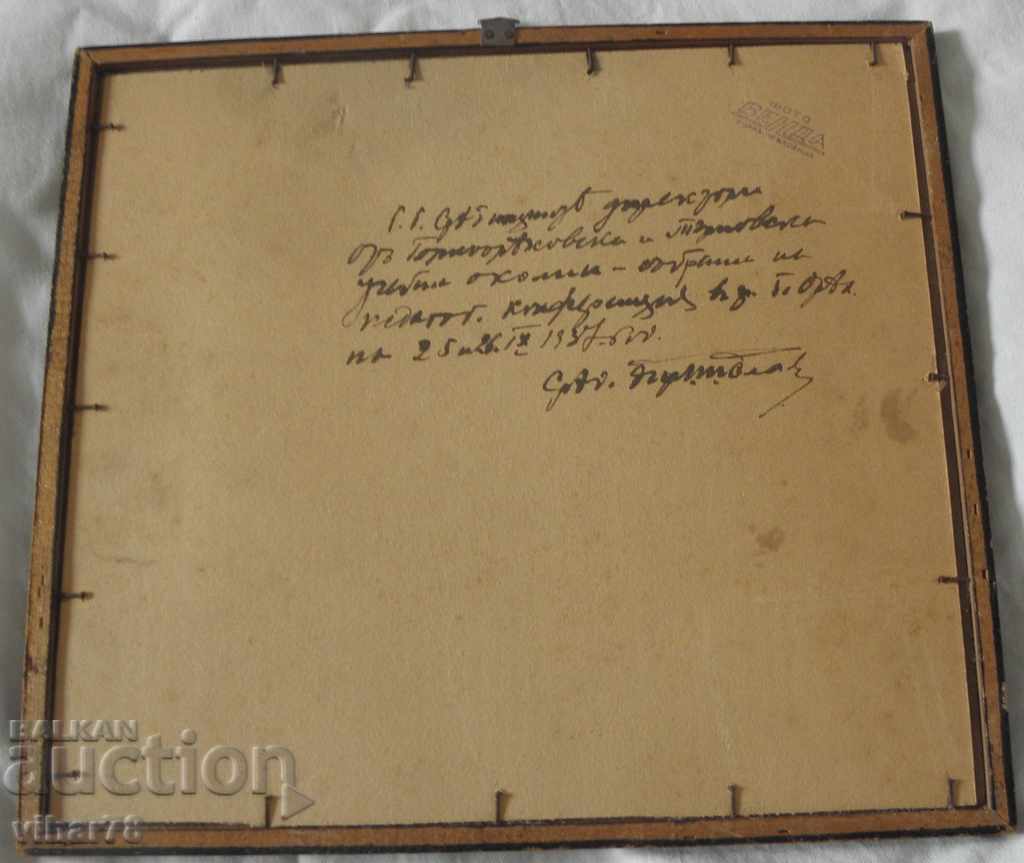 ФОТО
БЕНДА
Г. Г. директори
отъ Горнооръховска и Търновска
учебни околии – събрани на
педагог. конференция въ гр. Г. Орѣх.
на 25 и 26. IX 1937 год.
BALKAN
auction
vihar78